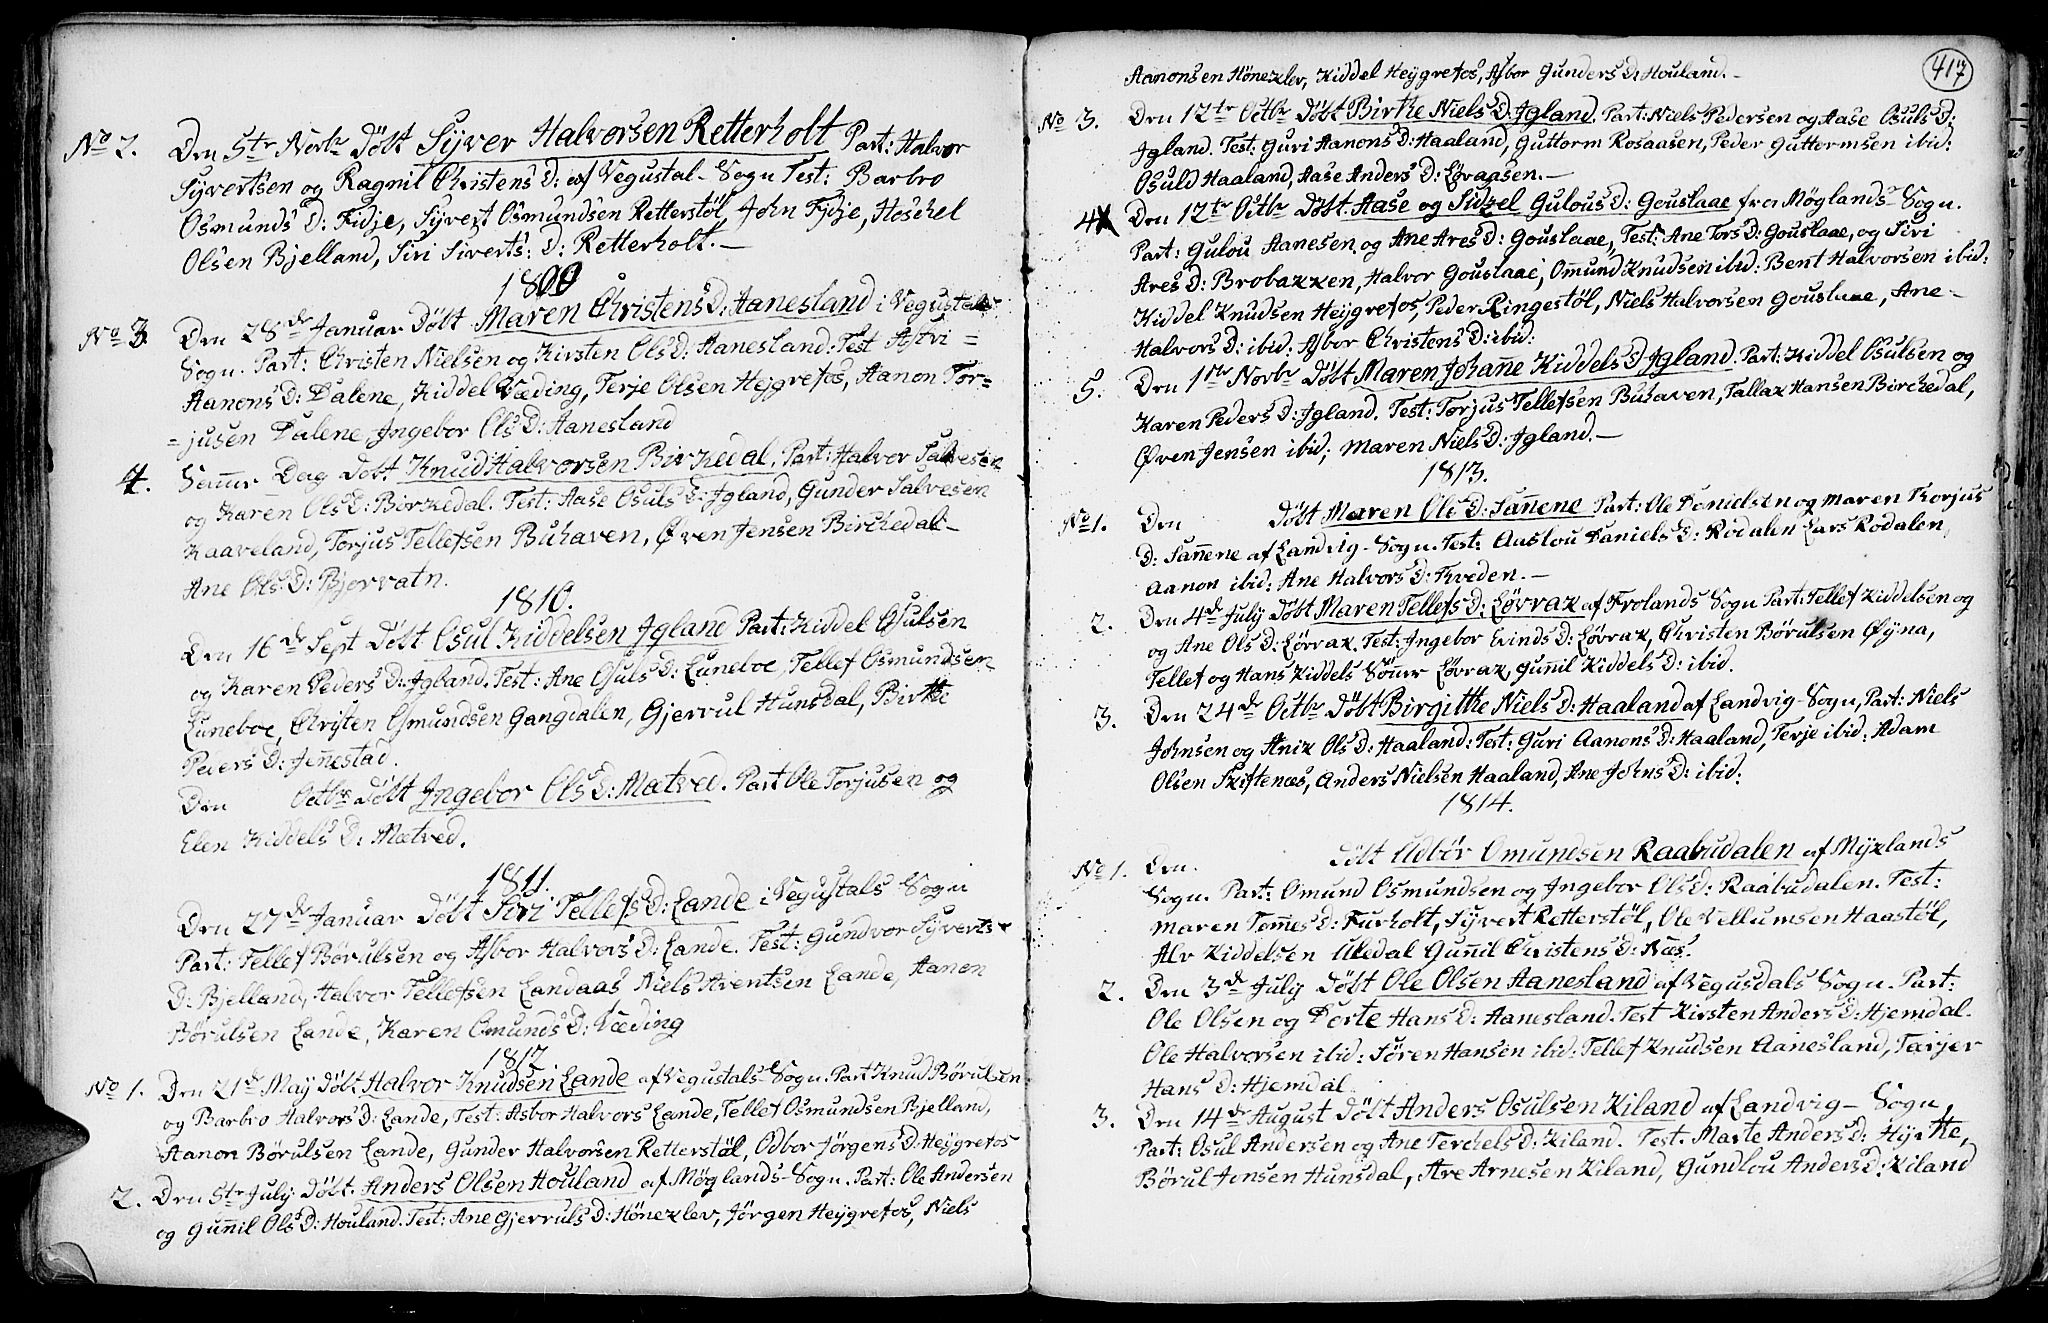 No 2. Den 5te Novbr Döbt Syver Halvorsen Retterholt Part: Halvor
Syvertsen og Ragnil Christens D: af Vegustal-Sogn Test: Barbro
Osmunds D: Fidje, Syvert Osmundsen Retterstöl, John Fidje, Hoskel
Olsen Bjelland, Siri Siverts: D: Retterholt.—
1809
No 3 Den 28de Januar Döbt Maren Christens D: Aanesland i Vegustals
Sogn. Part: Christen Nielsen og Kirsten Ols D: Aanesland: Test Astri =
Aanons D: Dalene, Kiddel Væding, Terje Olsen Hejgrefos, Aanon Tor=
=jusen Dalene Ingebor Ols D: Aanesland
4. Samme Dag Döbt Knud Halvorsen Birkedal. Part: Halvor Salvesen
og Karen Ols D: Birkedal. Test: Aase Osuls D: Igland, Gunder Salvesen
Kaaveland, Torjus Tellefsen Buhaven, Øven Jensen Birchedal-
Ane Ols D: Bjorvatn.
1810.
Den 16de Sept Döbt Osul Kiddelsen Igland Part: Kiddel Osulsen
og Karen Peders D: Igland. Test: Ane Osuls D: Luneboe, Tellef Osmundsen
Luneboe, Christen Osmundsen Gangdalen, Gjerrul Hunsdal, Birthe
Peders D: Jen̄estad.
Den Octbr Döbt Ingebor Ols D: Mætved. Part Ole Torjusen og
Elen Kiddels D: Mætved.
1811.
Den 27de Januar Döbt Siri Tellefs D: Lande i Vegustals Sogn
Part: Tellef Börulsen og Asbor Halvors D: Lande. Test: Gundvor Syverts-
D: Bjelland, Halvor Tellefsen Landaas Niels Arentsen Lande, Aanon
Börulsen Lande, Karen Omunds D: Væding
1812
No 1. Den 21de May Döbt Halvor Knudsen Lande af Vegustals-Sogn. Part Knud Börulsen
og Barbro Halvors D: Lande, Test: Asbor Halvors Lande, Tellef Osmundsen Bjelland,
Aanon Börulsen Lande, Gunder Halvorsen Retterstöl, Odbor Jörgens D: Heygrefos
2. Den 5te July Döbt. Anders Olsen Houland af Möglands-Sogn. Part: Ole Andersen
og Gun̄il Ols D: Houland. Test: Ane Gjerruls D: Hönezlev, Jörgen Heygrefos, Niels
417
Aanonsen Hönezlev, Kiddel Heygrefos, Asbor Gunders D: Houland.—
No 3. Den 12te Octbr Döbt Birthe Niels D: Igland. Part: Niels Pedersen og Aase Osuls D:
Igland. Test: Guri Aanons D: Haaland, Guttorm Rosaasen, Peder Guttormsen ibid:
Osuld Haaland, Aase Anders D: Løvaasen.—
4 Den 12te Octbr Döbt: Aase og Sidzel Gulous D: Gouslaae fra Möglands-Sogn.
Part: Gulou Aanesen og Ane Ares D: Gouslaae, Test: Ane Tors D: Gouslaae, og Siri
Ares D: Brobakken, Halvor Gouslaae, Omund Knudsen ibid: Bent Halvorsen ibid:
Kiddel Knudsen Heygrefos, Peder Ringestöl, Niels Halvorsen Gouslaae, Ane-
Halvors D: ibid: Asbor Christens D: ibid:
5. Den 1te Novbr Döbt Maren Johan̄e Kiddels D Igland. Part: Kiddel Osulsen og
Karen Peders D: Igland. Test: Torjus Tellefsen Buhaven, Tallax Hansen Birchedal,
Øven Jensen ibid; Maren Niels D: Igland.—
1813.
No 1. Den Döbt Maren Ole D: San̄ene Part: Ole Danielsen og Maren Thorjus
D: San̄ene af Landvig-Sogn. Test: Auslou Daniels D: Rodalen Lars Rodalen,
Aanon ibid: Ane Halvors D: Kveden.—
2. Den 4de July Döbt Maren Tellefs D: Lövrax af Frolands Sogn Part: Tellef Kiddelsen og
og Ane Ols D: Lövrax. Test: Ingebor Evinds D: Lövrax, Christen Börulsen Øyna,
Tellef og Hans Kiddels Sönner Lövrax, Gun̄il Kiddels D: ibid.
3. Den 24de Octbr Döbt Birgitthe Niels D: Haaland af Landvig-Sogn, Part: Niels
Johnsen og Anix Ols D: Haaland: Test: Guri Aanons D: Haaland, Terje ibid: Adam
Olsen Skiftenæs, Anders Nielsen Haaland, Ane Johns D: ibid:
1814.
No 1. Den. Döbt Udbör Omundsen Raabudalen af Myklands
Sogn. Part: Omund Osmundsen og Ingebor Ols D: Raabudalen. Test:
Maren Tom̄es D: Furholt, Syvert Retterstöl, Ole Vellumsen Haastöl,
Alv Kiddelsen Uledal Gun̄il Christens D: Næs.
2. Den 3de July Döbt Ole Olsen Aanesland af Vegusdals Sogn. Part:
Ole Olsen og Dorte Hans D: Aanesland. Test Kirsten Anders D: Hjemdal.
Ole Halvorsen ibid: Sören Hansen ibid: Tellef Knudsen Aanesland, Tarjer
Hans D: Hjemdal
3. Den 14de August Döbt Anders Osulsen Kiland af Landvig- Sogn
Part: Osul Andersen og Ane Terchels D: Kiland. Test. Marte Anders D: Hytte,
Börul Jonsen Hunsdal, Are Arnesen Kiland, Gundlou Anders D: Kiland